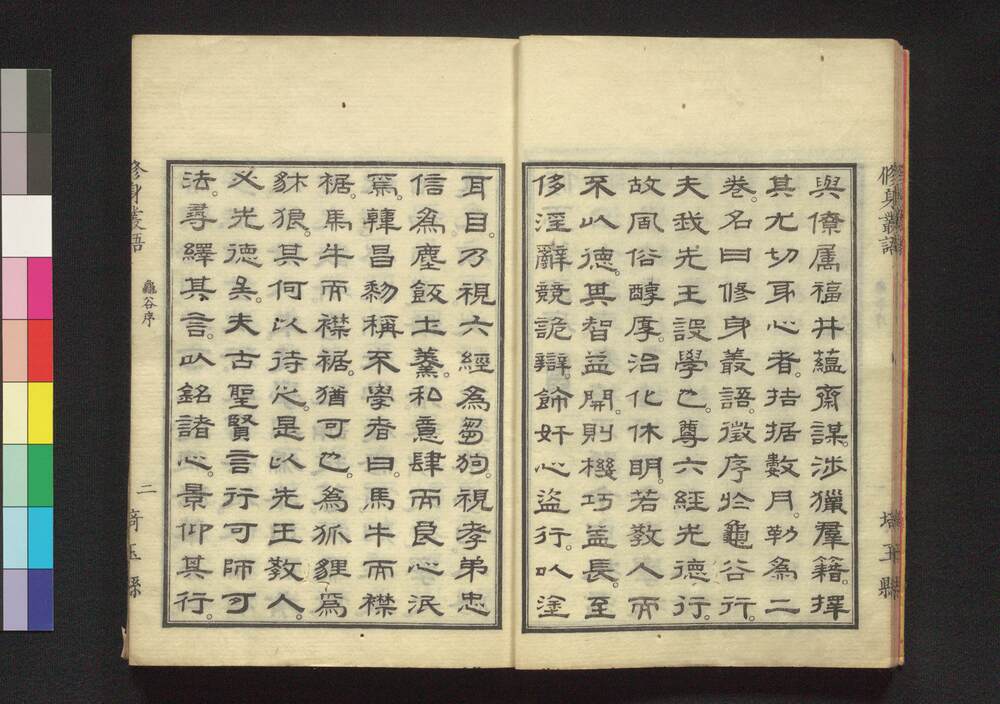 與僚属福井蘊齋謀。涉獵羣籍。擇
其尤切身心者。拮据數月。勒為二
卷。名曰修身叢語。徵序於龜谷行。
夫我先王設學也。尊六經先德行。
故風俗醇厚。治化休明。若教人而
不以德。其智益開。則機巧益長。至
侈淫辭競詭辯。飾奸心盜行。以塗
耳目。乃視六經為芻狗。視孝弟忠
信為塵飯土羹。私意肆而良心泯
焉。韓昌黎稱不學者曰。馬牛而襟
裾。馬牛而襟裾。猶可也。為狐貍為
豺狼。其何以待之。是以先王教人。
必先德矣。夫古聖賢言行可師可
法。尋繹其言。以銘諸心。景仰其行。
修身叢語
龜谷序
二
埼玉縣
修身叢語
埼玉縣